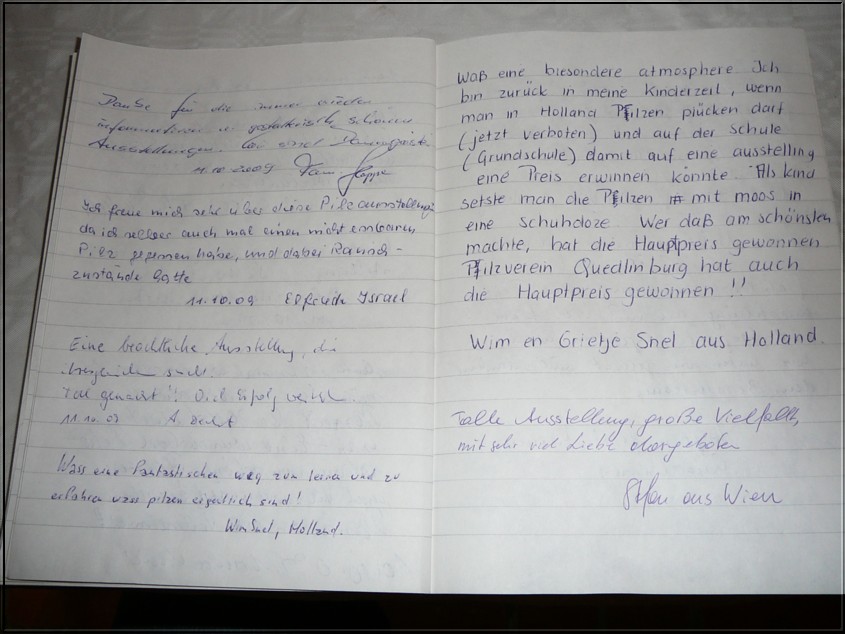 Danke für die immer wieder
informativen u. gestalterisch schönen
Ausstellungen.
11.10.2009
Ich freue mich sehr über diese Pilzausstellung
da ich selber auch mal einen nicht essbaren
Pilz gegessen habe, und dabei Rausch-
zustände hatte
11.10.09 Israel
Eine beachtliche Ausstellung, die
Toll gemacht!! Viel Erfolg
11.10.09 A.
Wass eine Fantastischen weg zum lernen und zu
erfahren was pilzen eigentlich sind!
Wim Snel, Holland.
Waß eine biesondere atmosphere Ich
bin zurück in meine Kinderzeil, wenn
man in Holland Pfilzen plücken darf
(jetzt verboten) und auf der schule
(Grundschule) damit auf eine ausstelling
eine Preis erwinnen könnte. Als kind
setste man die Pfilzen mit moos in
eine schuhdoze. Wer daß am schönsten
machte, hat die Hauptpreis gewonnen
Pfilzverein Quedlinburg hat auch
die Hauptpreis gewonnen !!
Wim en Grietje Snel aus Holland.
Tolle Ausstellung, große Vielfalt,
mit sehr viel Liebe dargeboten
aus Wien